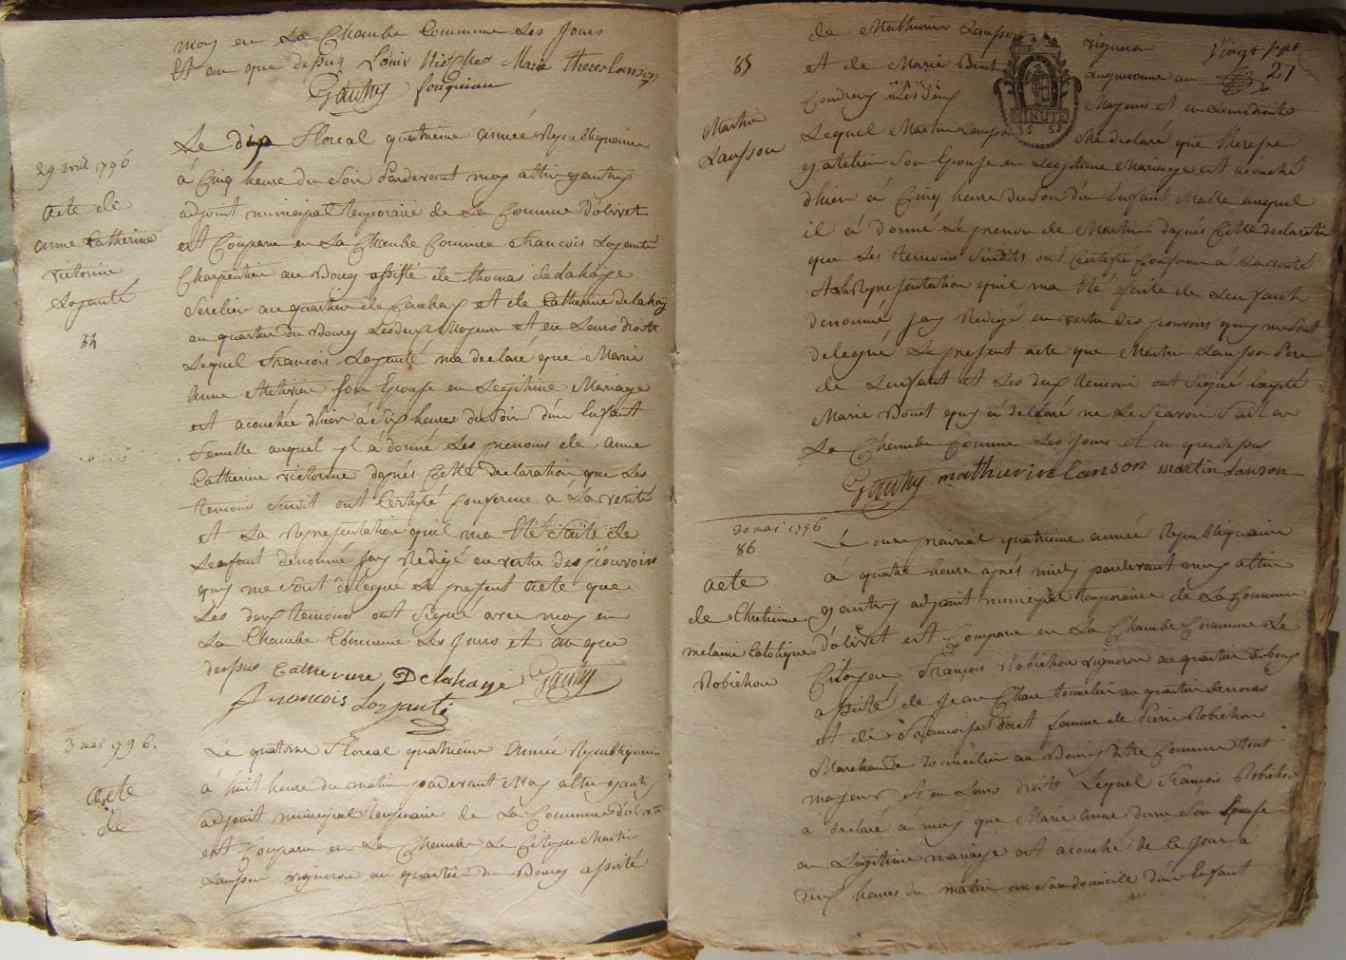 moy en La Chambe Commune Les Jours
Et an que dessus Louis Marie therese lanson
Gauthy fouqueau
29 avril 1796
acte de
anne Catherine
victorine
Lozanté
84
Le dix floreal quatrieme année Republiquaine
à Cinq heure du Soir Pardevant moy
adjoint municipal temporaire de La Commune d'olivet
est Comparu en La Chambe Commune francois Lozanté
Charpentier au Bourg assisté de thomas delahaye
au quartier de et de Catherine delahay
au quartier du Bourg Les deux Majeur et en Leurs droits
Lequel francois Lozanté ma declaré que Marie
Anne Son Epouse en Legitime Mariage
est acouchée d'hier à dix heures du Soir d'un Enfant
femelle auquel il a donné Les prenoms de anne
Catherine victorine daprés Cette declaration que Les
temoins Susdit ont Certifié Conforme a La verité
et La Representation quil ma été faite de
Lenfant denommé Jay Redigé en vertu des pouvoirs
quy me Sont delegué Le present acte que
Les deux temoins ont Signé avec moy en
La Chambe Commune Les Jours et an que
dessus Catherine Delahaye Gauthy
francois Lozanté
3 mai 1796.
acte
de
Le quatorze floreal quatrieme Année Republiquaine
à huit heure du matin pardevant Moy
adjoint municipal temporaire de La Commune d'olivet
est Comparu en La Chambe Le Citoyen Martin
Lansson vigneron au quartier du Bourg assisté
85
Martin
Lansson
de Mathurin Lansson vigneron
Vingt sept
27
et de Marie
MINUTE
Les deux Majeurs et
Lequel Martin Lansson Ma declaré que Therese
Son Epouse en Legitime Mariage est acouché
d'hier à Cinq heure du Soir d'un Enfant Masle auquel
il à donné Le prenom de Martin dapres Cette declaration
que Les temoins Susdits ont Certifié Conforme à La verité
et La Representation quil ma été faite de Lenfant
denommé Jay Redigé en vertu des pouvoirs quy me Sont
delegué Le present acte que Martin Lansson Pere
de Lenfant et Les deux temoins ont Signé Excepté
Marie quy a declaré ne Le Scavoir Fait en
La Chambe Commune Les Jours et an que dessus
Gauthy mathurin lanson martin lanson
30 mai 1796
86
acte
de Chretienne
melanie Catolique
Robichon
Le onze prairial quatrieme année Republiquaine
à quatre heure aprés midy pardevant moy
Gauthy adjoint municipal temporaire de La Commune
d'olivet est Comparu en La Chambe Commune Le
Citoyen François Robichon vigneron au quartier
assisté de Jean tonnelier au quartier
et de femme de Pierre Robichon
Marchand domicilier au Bourg Commune tout
majeurs et en Leurs droits Lequel François Robichon
a declaré à moy que Marie Anne Son Epouse
en Legitime mariage est acouché de Ce Jour à
dix heures du matin en Son domicile d'un Enfant